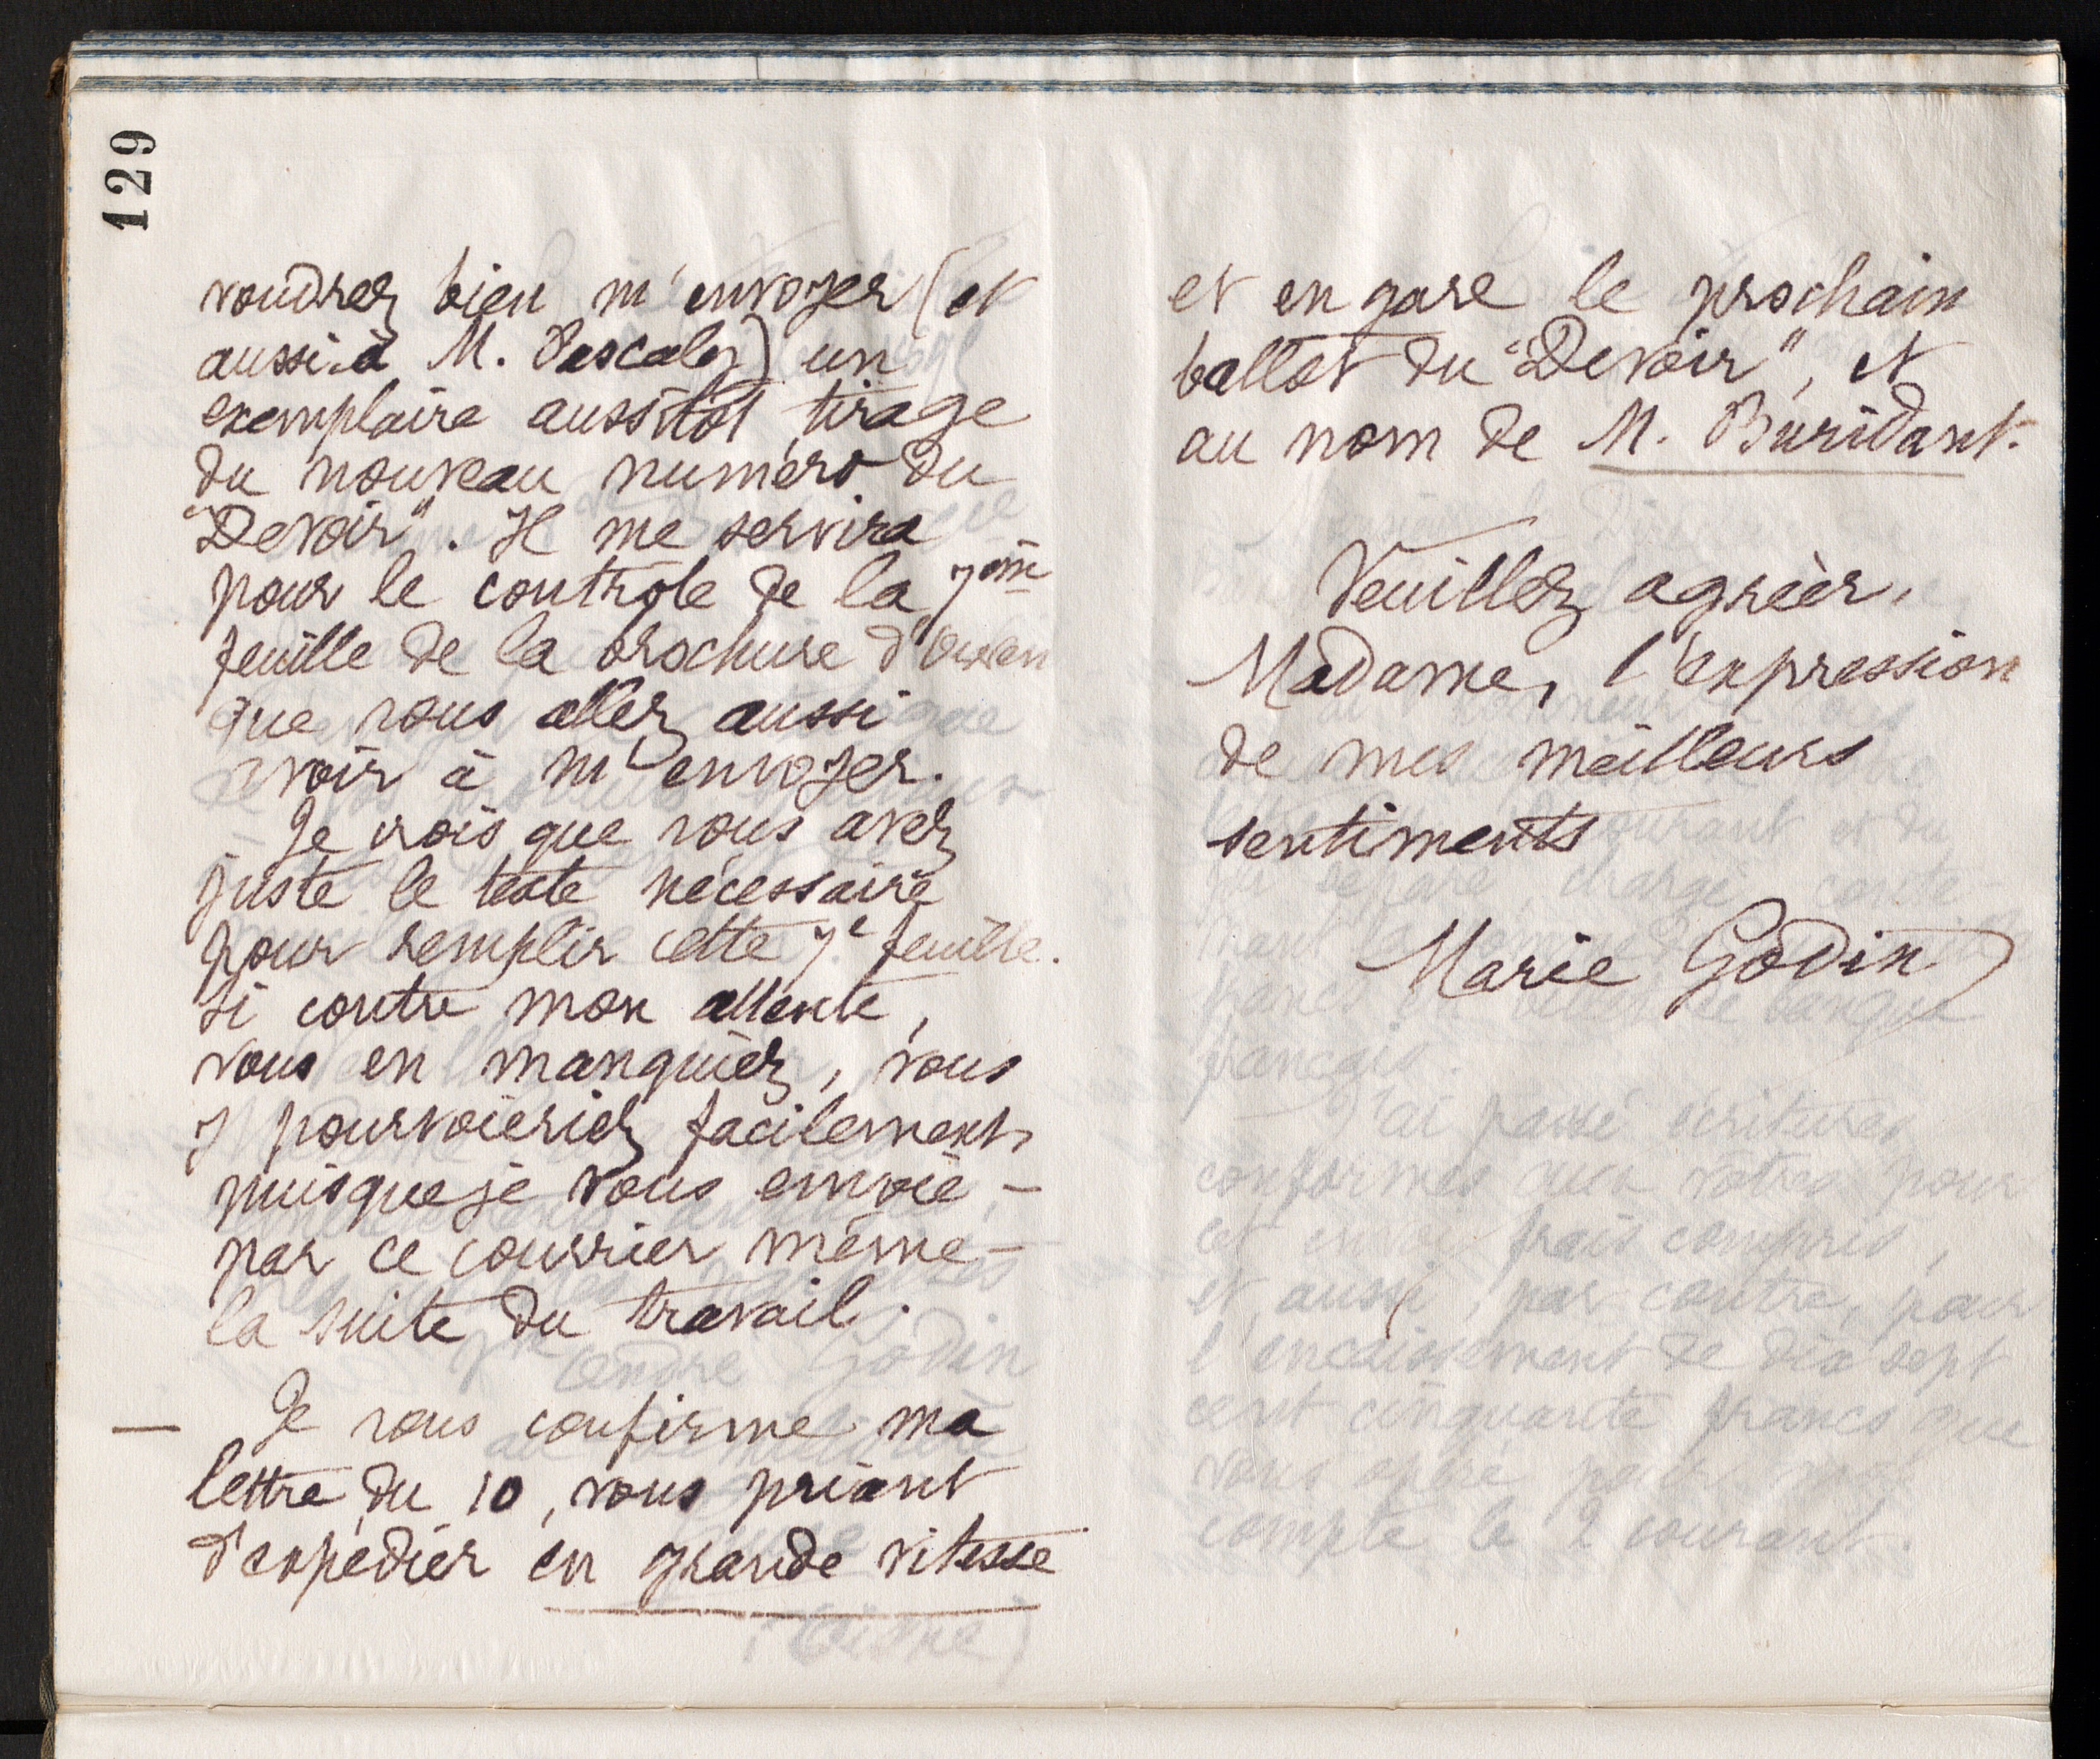 129
voudrez bien m'envoyer (et
aussi à M. Pascaly) un
exemplaire aussitôt tirage
du nouveau numéro du
"Devoir". Il me servira
pour le contrôle de la 7ème
feuille de la brochure d'Owen
que vous allez aussi
avoir à m'envoyer.
Je crois que vous avez
juste le texte nécessaire
pour remplir cette 7e feuille.
Si contre mon attente,
vous en manquiez, vous
y pourvoieriez facilement
puisque je vous envoie -
par ce courrier même -
la suite du travail.
— Je vous confirme ma
lettre du 10, vous priant
d'expédier en grande vitesse
et en gare le prochain
ballot du "Devoir", et
au nom de M. Buridant.
Veuillez agréer,
Madame, l'expression
de mes meilleurs
sentiments
Marie Godin